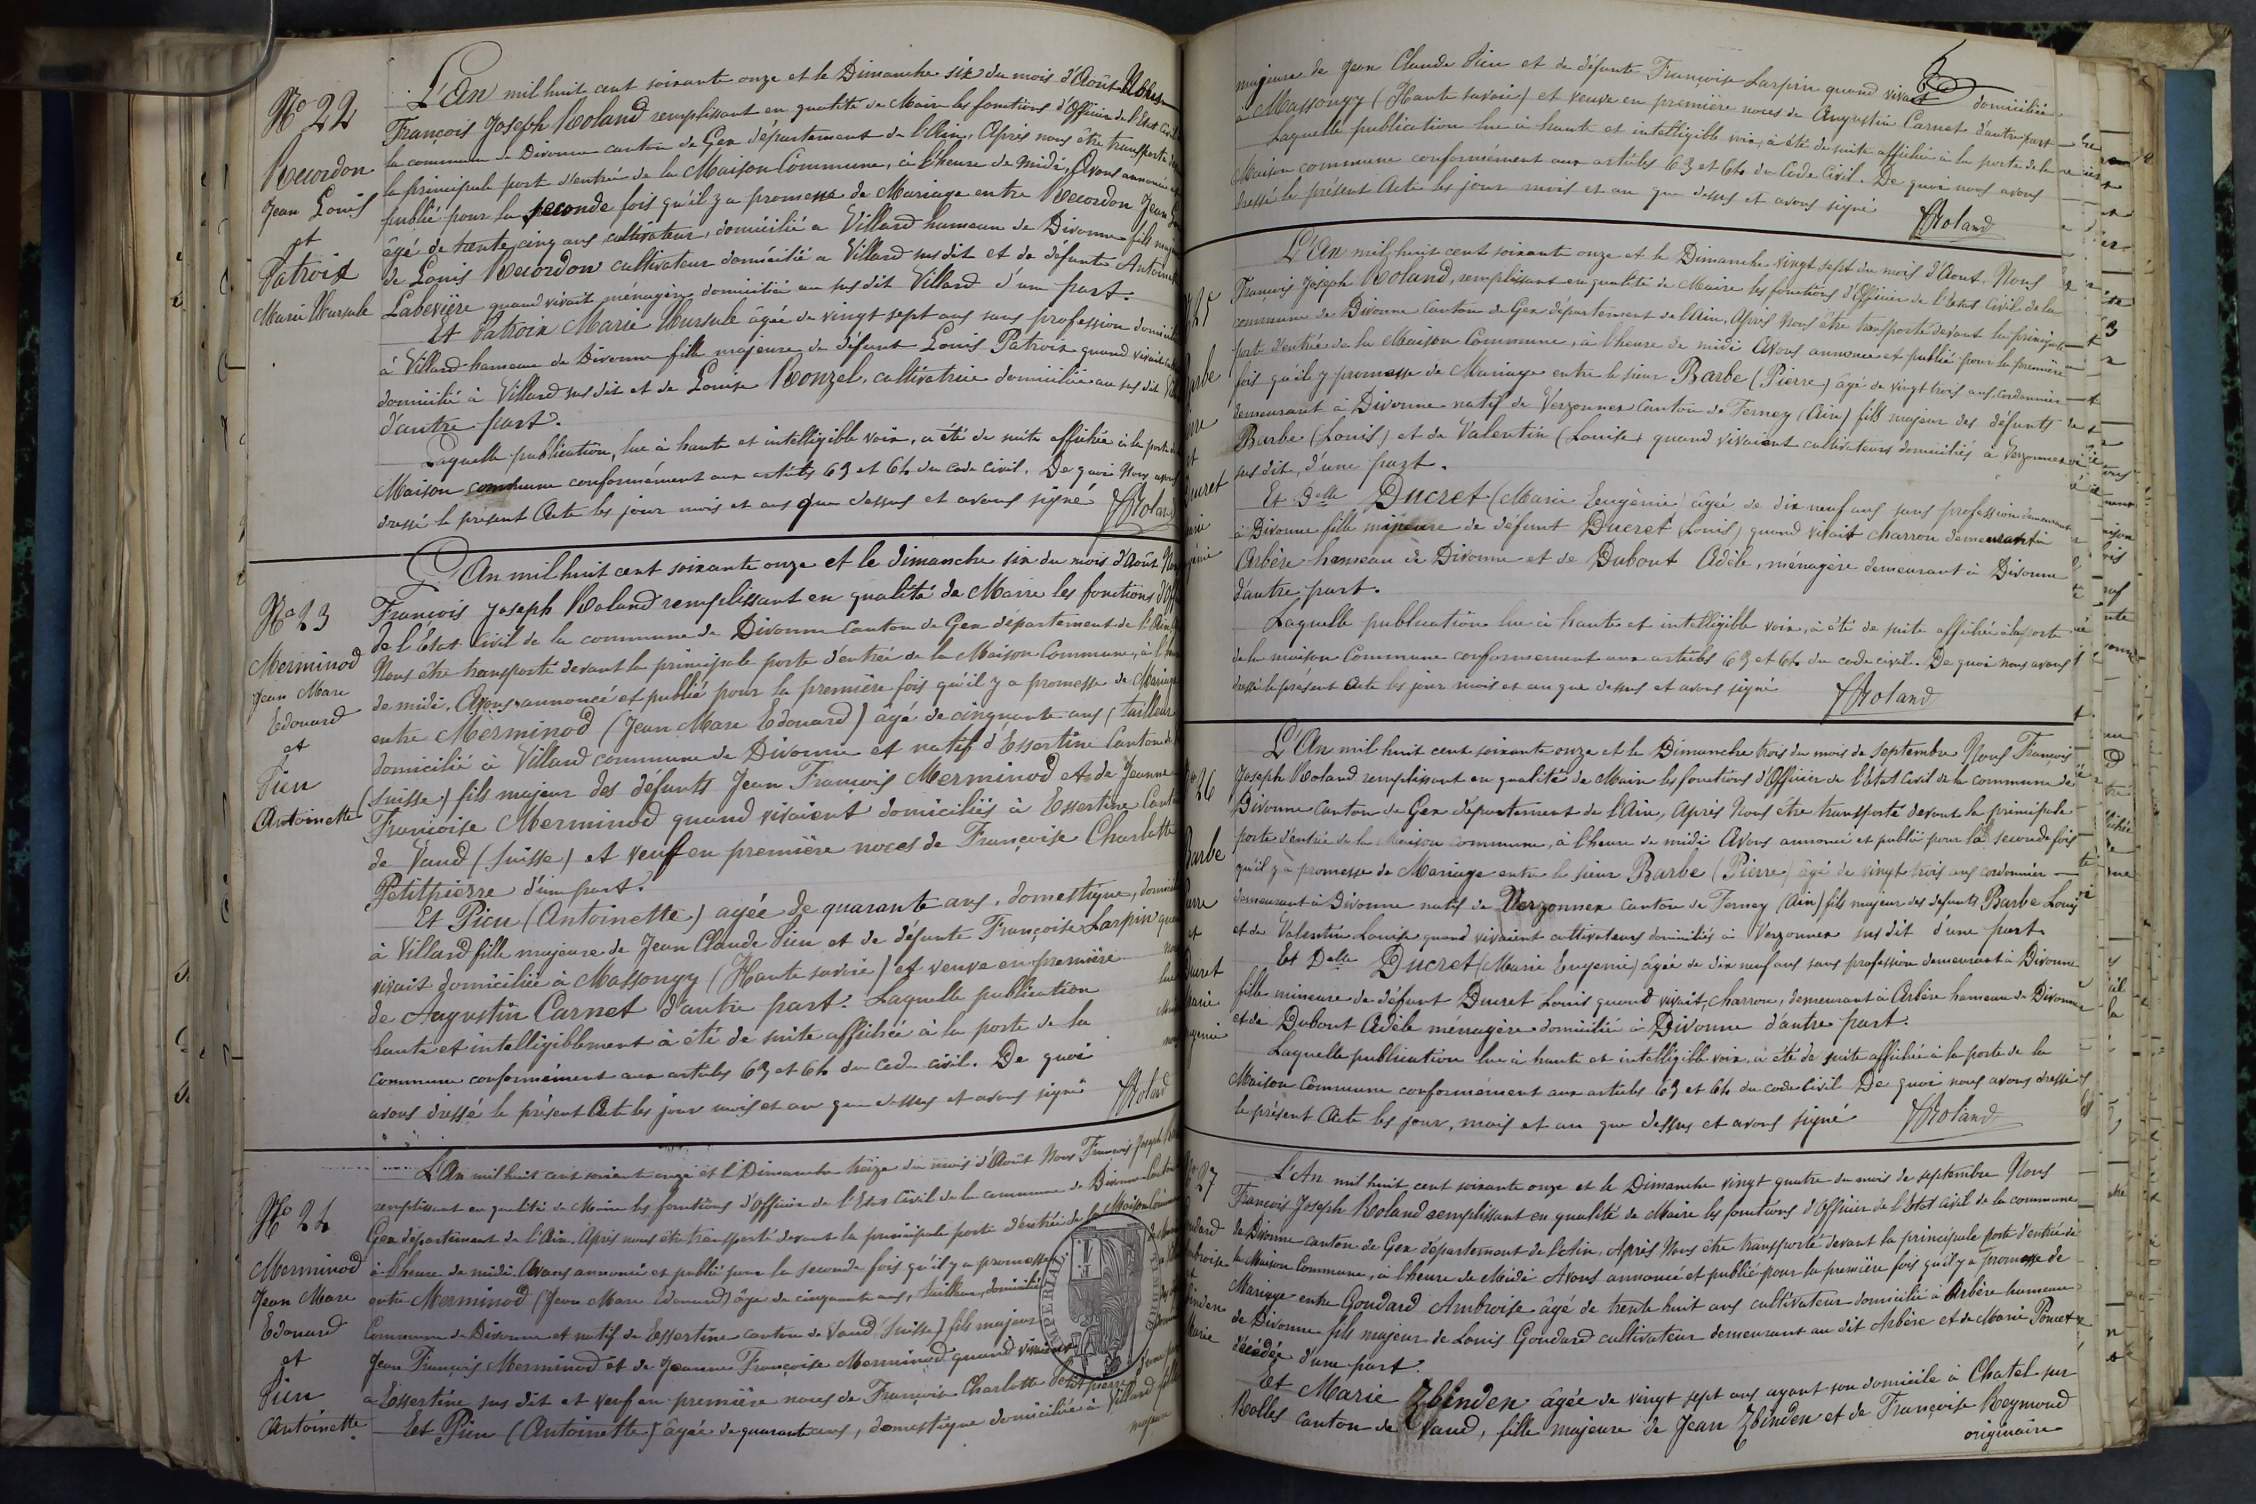 Nº 22
Recordon
Jean Louis
et
Patroix
Marie Ursule
L'An mil huit cent soixante onze et le Dimanche six du mois d'Août Nous
François Joseph Roland remplissant en qualité de Maire les fonctions d'Officier de l'Etat Civil
la commune de Divonne canton de Gex département de l'Ain, Après nous être transporté
la principale port d'entrée de la Maison Commune, à l'heure de midi, Avons annoncé et
publié pour la seconde fois qu'il y a promesse de Mariage entre Recordon Jean
âgé de trente cinq ans cultivateur, domicilié a Villard hameau de Divonne fils
de Louis Recordon cultivateur domicilié a Villard susdit et de défunte
Labevière quand vivait ménagère domicilié au susdit Villard d'une part.
Et Patroix Marie Ursule agée de vingt sept ans sans profession
à Villard hameau de Divonne fille majeure de défunt Louis Patroix quand vivait
domicilié à Villard susdit et de Louise Ronzel, cultivatrice domiciliée au susdit
d'autre part.
Laquelle publication, lue à haute et intelligible voix, a été de suite affichée à la porte
Maison commune conformément aux articles 63 et 64 du code civil. De quoi Nous avons
dressé le présent Acte les jour mois et ans que dessus et avons signé
FRoland
Nº 23
Merminod
Jean Marc
Edouard
et
Pieu
Antoinette
L'An mil huit cent soixante onze et le dimanche six du mois d'Août
François Joseph Roland remplissant en qualité de Maire les fonctions
de l'État Civil de la commune de Divonne canton de Gex département de l'Ain
Nous être transporté devant la principale porte d'entrée de la Maison Commune, à
de midi. Avons annoncé et publié pour la première fois qu'il y a promesse de Mariage
entre Merminod (Jean Marc Edouard) âgé de cinquante ans, tailleur
domicilié à Villard commune de Divonne et natif d'Essertine Canton de
(Suisse) fils majeur des défunts Jean François Merminod et de Jeanne
Françoise Merminod quand vivaient domiciliés à Essertine
de Vaud (Suisse) et veuf en première noces de Françoise Charlotte
Petitpierre d'une part.
Et Pieu (Antoinette) agée de quarante ans, domestique,
à Villard fille majeure de Jean Claude Pieu et de défunte Françoise Larpin
vivait domiciliée à Massongy (Haute savoie) et veuve en première
de Augustin Carnet d'autre part. Laquelle publication
haute et intelligiblement à été de suite affichée à la porte de la
commune conformément aux articles 63 et 64 du code civil. De quoi
avons dressé le présent Acte les jour mois et an que dessus et avons signé
FRoland
Nº 24
Merminod
Jean Marc
Edouard
et
Pieu
Antoinette
L'An mil huit cent soixante onze et l Dimanche treize du mois d'Août Nous François Joseph
remplissant en qualité de Maire les fonctions d'Officier de l'Etat Civil de la commune de Divonne
Gex département de l'Ain. Après nous être transporté devant la principale porte d'entrée de la Maison
à l'heure de midi. Avons annoncé et publié pour la seconde fois qu'il y a promesse
entre Merminod (Jean Marc Edouard) âge de cinquante ans, tailleur, domicilié
Commune de Divonne et natif de Essertine canton de Vaud (Suisse) fils majeur
Jean François Merminod et de Jeanne Françoise Merminod quand vivaient
a Essertine sus dit et veuf en première noces de Françoise Charlotte Petitpierre d'une part
Et Pieu (Antoinette) âgée de quarante ans, domestique domiciliée à Villard fille
majeure
majeure de Jean Claude Pieu et de défunte Françoise Larpin quand vivait domiciliée
à Massongy (Haute savoie) et veuve en première noces de Augustin Carnet d'autre part
Laquelle publication lue à haute et intelligible voix, à été de suite affichée à la porte de la
Maison commune conformément aux articles 63 et 64 du Code Civil. De quoi nous avons
dressé le présent Acte les jour mois et an que dessus et avons signé
FRoland
25
Barbe
et
Ducret
L'An mil huit cent soixante onze et le Dimanche vingt sept du mois d'Aout. Nous
François Joseph Roland, remplissant en qualité de Maire les fonctions d'Officier de l'Etat Civil de la
commune de Divonne Canton de Gex département de l'Ain, Après Nous être transporté devant la principale
porte d'entrée de la Maison Commune, à l'heure de midi Avons annoncé et publié pour la première
fois qu'il y promesse de Mariage entre le sieur Barbe (Pierre) âgé de vingt trois ans, cordonnier
demeurant à Divonne natif de Verzonnex Canton de Ferney (Ain) fils majeur des défunts
Barbe (Louis) et de Valentin (Louise) quand vivaient cultivateurs domiciliés à Verzonnex
sus dit, d'une part.
Et Delle Ducret (Marie Eugènie) âgée de dix neuf ans sans profession demeurant
à Divonne fille mineure de défunt Ducret (Louis) quand vivait charron demeurant à
Arbère hameau de Divonne et de Dubout Adèle, ménagère demeurant à Divonne
d'autre part.
Laquelle publication lue à haute et intelligible voix, à été de suite affichée à la porte
de la maison Commune conformément aux articles 63 et 64 du code civil. De quoi nous avons
dressé le présent Acte les jour mois et an que dessus et avons signé
FRoland
26
Barbe
et
Ducret
L'An mil huit cent soixante onze et le Dimanche trois du mois de septembre Nous François
Joseph Roland remplissant en qualité de Maire les fonctions d'Officier de l'Etat Civil de la commune de
Divonne Canton de Gex département de l'Ain, Après Nous être transporté devant la principale
porte d'entrée de la Maison Commune, à l'heure de midi Avons annoncé et publié pour la seconde fois
qu'il y a promesse de Mariage entre le sieur Barbe (Pierre) âgé de vingt trois ans cordonnier
demeurant à Divonne natif de Verzonnex Canton de Ferney (Ain) fils majeur des defunts Barbe Louis
et de Valentin Louise quand vivaient cultivateurs domiciliés à Verzonnex susdit d'une part
Et Delle Ducret (Marie Eugenie) âgée de dix neuf ans sans profession demeurant à Divonne
fille mineure de défunt Ducret Louis quand vivait, charron, demeurant à Arbère hameau de Divonne
et de Dubout Adèle ménagère domicilié à Divonne d'autre part.
Laquelle publication lue à haute et intelligible voix, a été de suite affichée à la porte de la
Maison Commune conformément aux articles 63 et 64 du code Civil De quoi nous avons dressé
le présent Acte les jour, mois et an que dessus et avons signé
FRoland
27
L'An mil huit cent soixante onze et le Dimanche vingt quatre du mois de septembre Nous
François Joseph Roland remplissant en qualité de Maire les fonctions d'Officier de l'Etat civil de la commune
de Divonne canton de Gex département de l'Ain, Après Nous être transporté devant la principale porte d'entrée de
la Maison Commune, à l'heure de Midi Avons annoncé et publié pour la première fois qu'il y a promesse de
Mariage entre Goudard Ambroise âgé de trente huit ans cultivateur domicilié à Arbère hameau
de Divonne fils majeur de Louis Goudard cultivateur demeurant au dit Arbère et de Marie
décédée d'une part.
Et Marie Zbinden âgée de vingt sept ans ayant son domicile à Chatel sur
Rolles canton de Vaud, fille majeure de Jean Zbinden et de Françoise Reymond
originaire